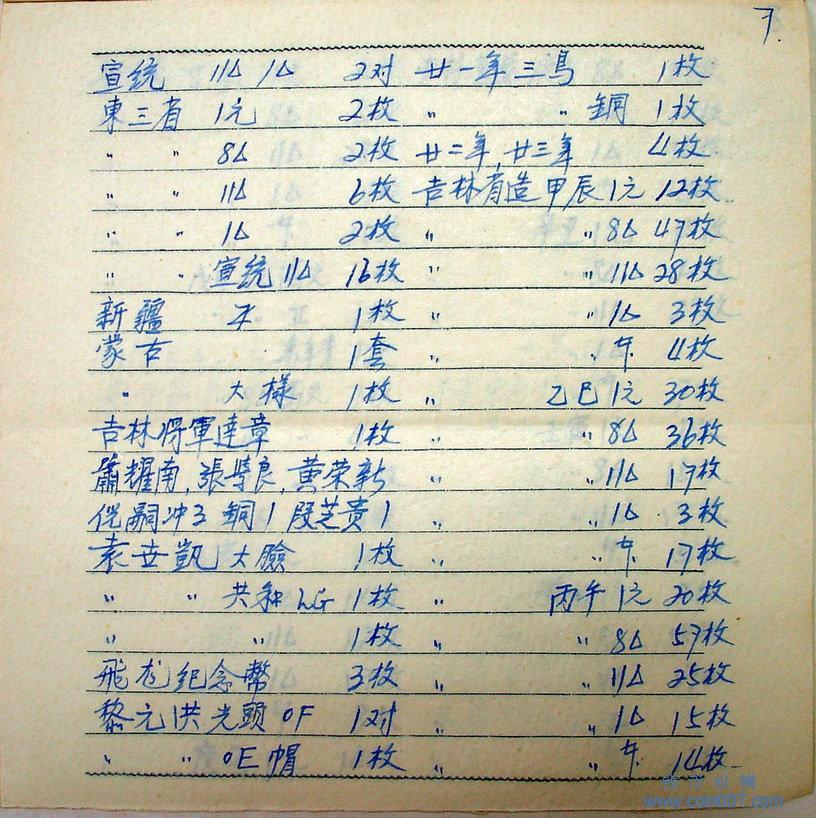 7.
宣统 11△ 1△ 2对 廿一年三鸟 1枚
東三省 1元 2枚 〃 〃 銅 1枚
〃 〃 8△ 2枚 廿二年,廿三年 4枚
〃 〃 11△ 6枚 吉林省造甲辰1元 12枚
〃 〃 1△ 2枚 〃 〃 8△ 47枚
〃 〃 宣统 11△ 16枚 〃 〃 11△ 28枚
新疆 1枚 〃 〃 1△ 3枚
蒙古 1套 〃 〃 4枚
〃 大樣 1枚 〃 乙巳1元 30枚
吉林将軍達章 1枚 〃 〃 8△ 36枚
蕭耀南,張學良,黄荣新 〃 〃 11△ 17枚
倪嗣冲3 銅1 段芝贵1 〃 〃 1△ 3枚
袁世凱大臉 1枚 〃 〃 17枚
〃 〃 共和 LG 1枚 〃 丙午1元 20枚
〃 〃 1枚 〃 〃 8△ 57枚
飛龙纪念幣 3枚 〃 〃 11△ 25枚
黎元洪光頭 OF 1对 〃 〃 1△ 15枚
〃 〃 OE帽 1枚 〃 〃 14枚
www.coin007.com